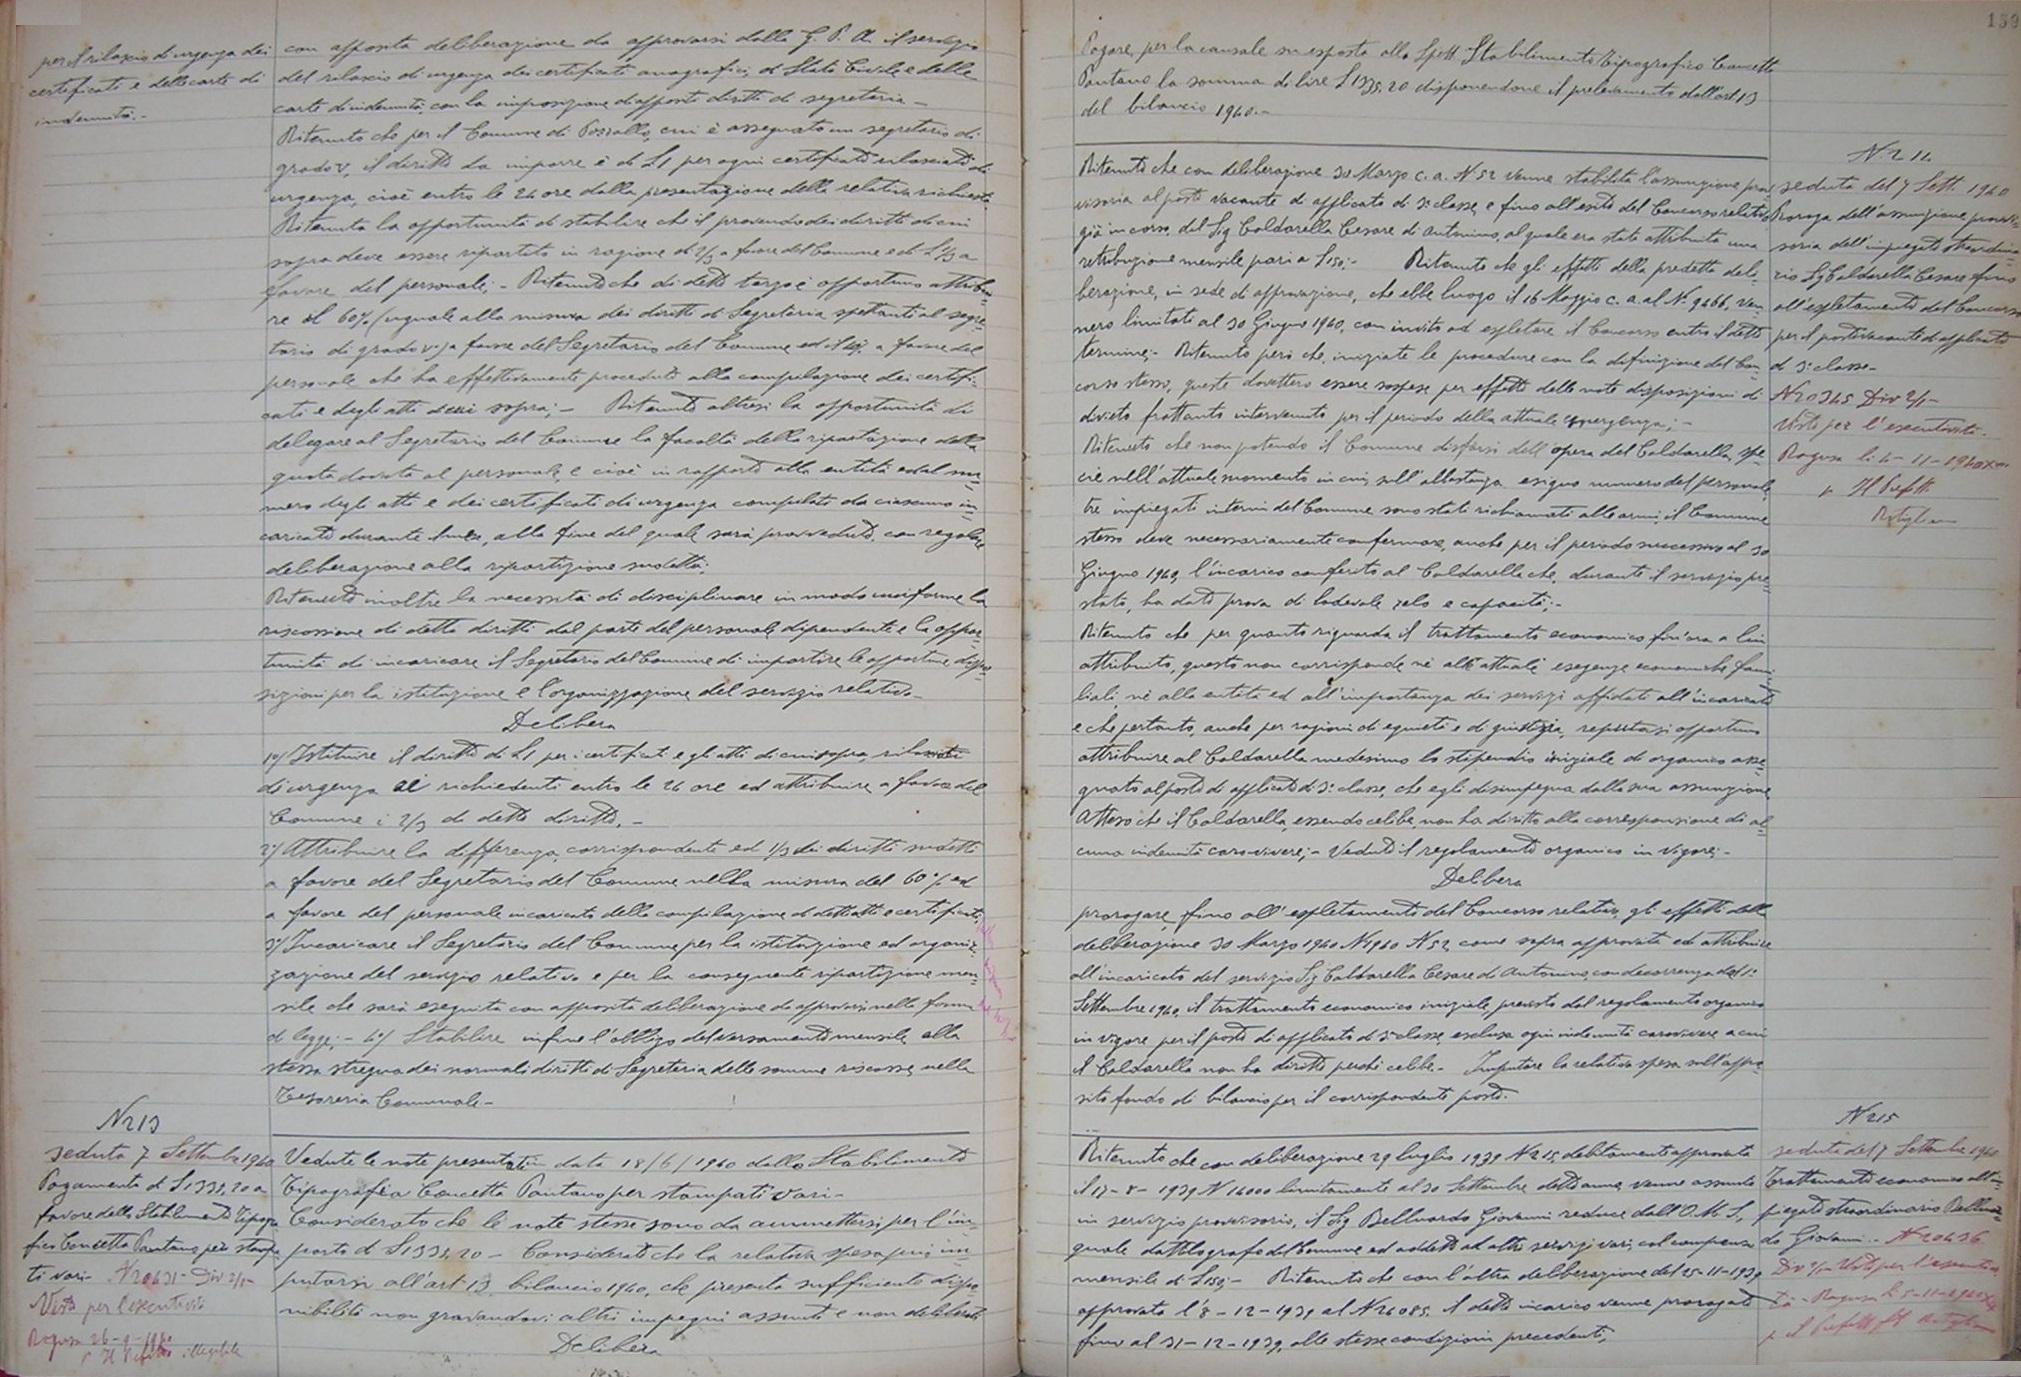 per il rilascio di urgenza dei
certificati e delle carte di
indennità.-
con apposita deliberazione da approvarsi dalla G. P. A. il servizio
del rilascio di urgenza dei certificati anagrafici, di Stato Civile e delle
carte di indennità, con la imposizione di appositi diritti di segreteria -
Ritenuto che per il Comune di Pozzallo, cui è assegnato un segretario di
grado V, il diritto da imporre è di L 1 per ogni certificato rilasciato di
urgenza, cioè entro le 24 ore dalla presentazione della relativa richiesta.
Ritenuta la opportunità di stabilire che il provento dei diritti di cui
sopra deve essere ripartito in ragione di 2/3 a favore del Comune e di 1/3 a
favore del personale; - Ritenuto che di detto terzo è opportuno attribui=
re il 60% (uguale alla misura dei diritti di Segreteria spettanti al segre=
tario di grado V) a favore del Segretario del Comune ed il a favore del
personale che ha effettivamente proceduto alla compilazione dei certifi=
cati e degli atti di cui sopra; - Ritenuto altresì la opportunità di
delegare al Segretario del Comune la facoltà della ripartizione della
quota dovuta al personale, e cioè in rapporto alla entità ed al nu=
mero degli atti e dei certificati di urgenza compilati da ciascuno in=
caricato durante il mese, alla fine del quale sarà provveduto, con regolare
deliberazione alla ripartizione sudetta;
Ritenuto inoltre la necessità di disciplinare in modo uniforme la
riscossione di detti diritti dal parte del personale dipendente e la oppor=
tunità di incaricare il Segretario del Comune di impartire le opportune dispo=
sizioni per la istituzione e l'organizzazione del servizio relativo -
Delibera
1°) Istituire il diritto di L 1 per i certificati e gli atti di cui sopra, rilasciati
di urgenza ai richiedenti entro le 24 ore ed attribuire a favore del
Comune i 2/3 di detto diritto. -
2°) Attribuire la differenza, corrispondente ad 1/3 dei diritti sudetti
a favore del Segretario del Comune nella misura del 60% ed
a favore del personale incaricato della compilazione di detti atti e certificati
3°) Incaricare il Segretario del Comune per la istituzione ed organiz=
zazione del servizio relativo e per la conseguente ripartizione men=
sile che sarà eseguita con apposita deliberazione da approvarsi nelle forme
di legge; - 4°) Stabilire infine l'obbligo del versamento mensile, alla
stessa stregua dei normali diritti di Segreteria delle somme riscosse, nella
Tesoreria Comunale.-
N 213
seduta 7 Settembre 1940
Pagamento di L 1335,20 a
favore dello Stabilimento Tipogra
fico Concetta Pantano per stampa
ti vari - N 20431 - Div 2/1 -
Visto per l'esecutività
Ragusa 26-9-1940
p Il Prefetto illegibile
Vedute le note presentate in data 18/6/1940 dallo Stabilimento
Tipografico Concetta Pantano per stampati vari -
Considerato che le note stesse sono da ammettersi per l'im=
porto di L 1335,20 - Considerato che la relativa spesa può im=
putarsi all'art 13 bilancio 1940, che presenta sufficiente dispo=
nibilità non gravandovi altri impegni assunti e non deliberati
Delibera
159
Pagare, per la causale su esposta alla Spett Stabilimento Tipografico Concetta
Pantano la somma di lire L 1335,20 disponendone il prelevamento dall'art 13
del bilancio 1940.-
N. 214
seduta del 7 Sett. 1940
Proroga dell'assunzione provvi=
soria dell'impiegato straordina=
rio Sig Caldarella Cesare fino
all'espletamento del Concorso
per il posto vacante di applicato
di 3ª classe-
N 20345 Div 2/1-
Visto per l'esecutività.
Ragusa li 4-11-1940 XIX
p Il Prefetto
Ritenuto che con deliberazione 30 Marzo c. a. N 52 venne stabilita l'assunzione prov
visoria al posto vacante di applicato di 3ª classe, e fino all'esito del Concorso relativo
già in corso, del Sig Caldarella Cesare di Antonino, al quale era stata attribuita una
retribuzione mensile pari a L 150;- Ritenuto che gli effetti della predetta deli=
berazione, in sede di approvazione, che ebbe luogo il 16 Maggio c. a. al N. 9466, ven=
nero limitati al 30 Giugno 1940, con invito ad espletare il Concorso entro il detto
termine;- Ritenuto però che, iniziate le procedure con la definizione del Con=
corso stesso, queste dovettero essere sospese per effetto delle note disposizioni di
divieto frattanto intervenuto per il periodo della attuale emergenza; -
Ritenuto che non potendo il Comune disfarsi dell'opera del Caldarella, spe=
cie nell'attuale momento in cui, sull'abbastanza esiguo numero del personale,
tre impiegati interni del Comune sono stati richiamati alle armi, il Comune
stesso deve necessariamente confermare, anche per il periodo successivo al 30
Giugno 1940, l'incarico conferito al Caldarella che, durante il servizio pre=
stato, ha dato prova di lodevole zelo e capacità;-
Ritenuto che per quanto riguarda il trattamento economico fin'ora a lui
attribuito, questo non corrisponde nè alle attuali esigenze economiche fami
liali, nè alla entità ed all'importanza dei servizi affidati all'incaricato
e che pertanto, anche per ragioni di equità e di giustizia, reputasi opportuno
attribuire al Caldarella medesimo lo stipendio iniziale di organico asse=
gnato al posto di applicato di 3ª classe, che egli disimpegna dalla sua assunzione
Atteso che il Caldarella, essendo celibe, non ha diritto alla corresponsione di al=
cuna indennità caro-vivere;- Veduto il regolamento organico in vigore;-
Delibera
prorogare, fino all'espletamento del Concorso relativo, gli effetti della
deliberazione 30 Marzo 1940 N 1940 N 52 come sopra approvata ed attribuire
all'incaricato del servizio Sig Caldarella Cesare di Antonino, con decorrenza dal 1°
Settembre 1940, il trattamento economico iniziale, previsto dal regolamento organico
in vigore per il posto di applicato di 3ª classe esclusa ogni indennità carovivere a cui
il Caldarella non ha diritto perchè celibe.- Imputare la relativa spesa sull'appo=
sito fondo di bilancio per il corrispondente posto.
N 215
seduta del 7 Settembre 1940
Trattamento economico all'im=
piegato straordinario Belluar=
do Giovanni - N 20436
Div 2/1 - Visto per l'esecutivi=
tà - Ragusa li 5-11-1940 XIX
p il Prefetto
Ritenuto che con deliberazione 29 luglio 1939 N 215, debitamente approvata
il 17-8-1939 N 16000 limitamente al 30 Settembre detto anno, venne assunto
in servizio provvisorio, il Sig Belluardo Giovanni reduce dall'O. M. S.,
quale dattilografo del Comune ed addetto ad altri servizi vari, col compenso
mensile di L 150;- Ritenuto che con l'altra deliberazione del 25-11-1939
approvata l'8-12-1939 al N 26085, il detto incarico venne prorogato
fino al 31-12-1939, alle stesse condizioni precedenti;